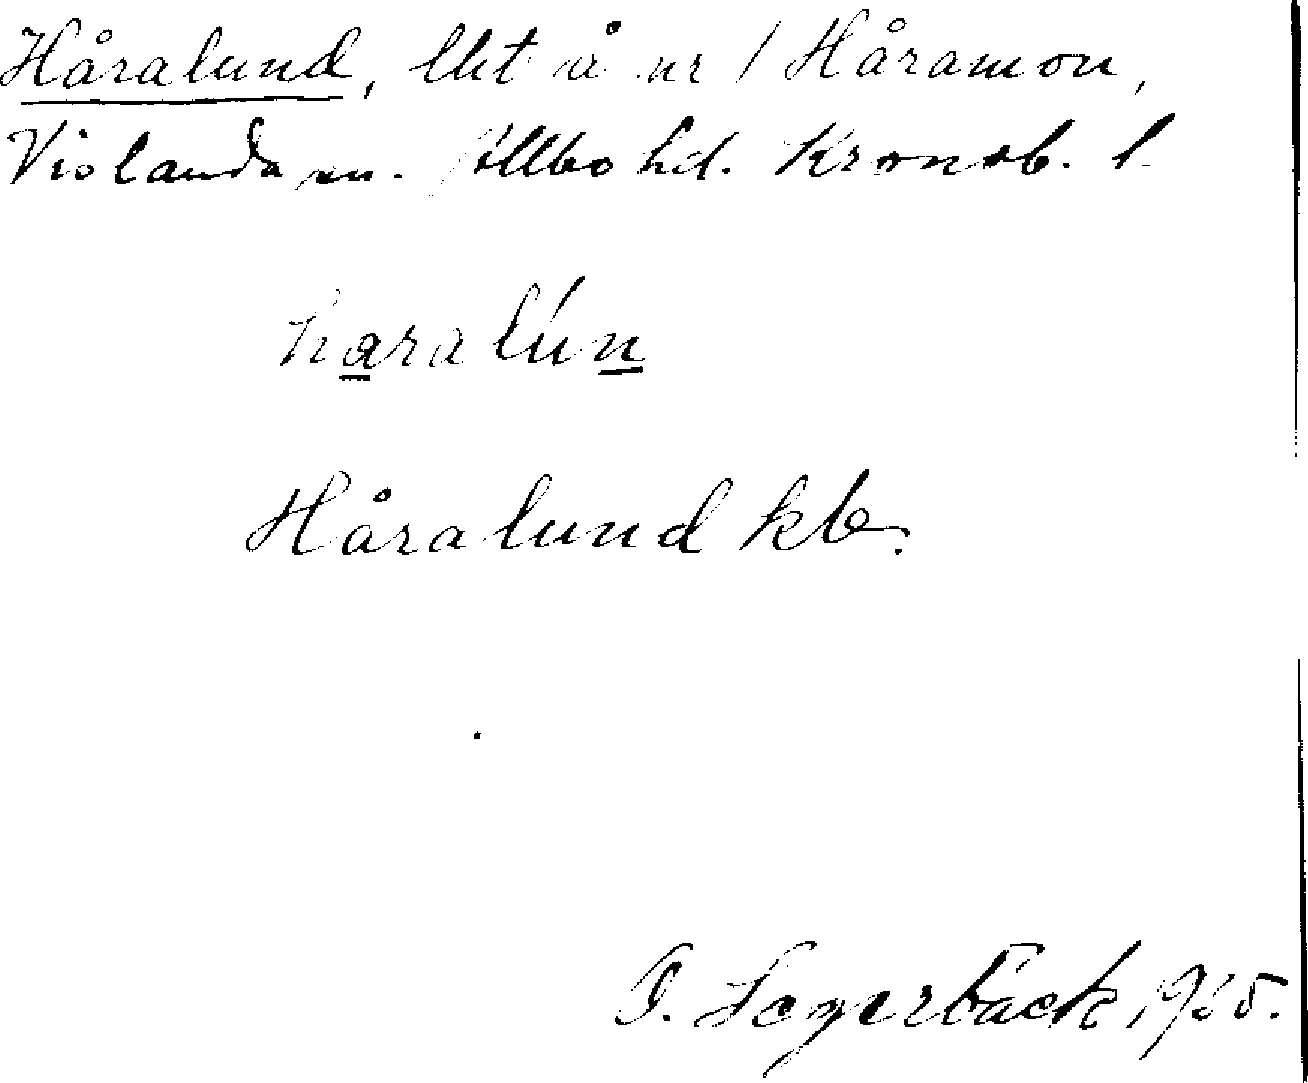 Håralund, lht å nr 1 Håramon,
Vislanda sn. Allbo hd. Kronob. l.
haralún
Håralund kb.
Lagerbäck,